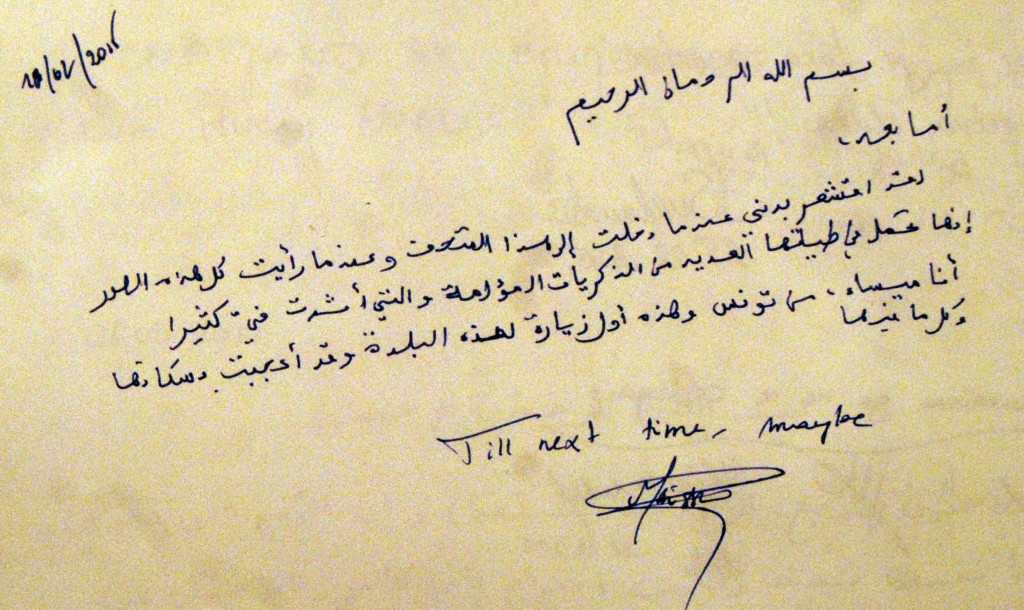 بسم الله الرحمان الرحيم
أما بعد،
لقد اقشعر بدني عندما دخلت إلى هذا المتحف وعندما رأيت كل هذه الصور
إنها تحمل في طياتها العديد من الذكريات المؤلمة والتي أثرت فيّ كثيرا
أنا ميساء، من تونس وهذه أول زيارة لهذه البلدة وقد أعجبت بسكانها
وكل ما فيها
Till next time, maybe